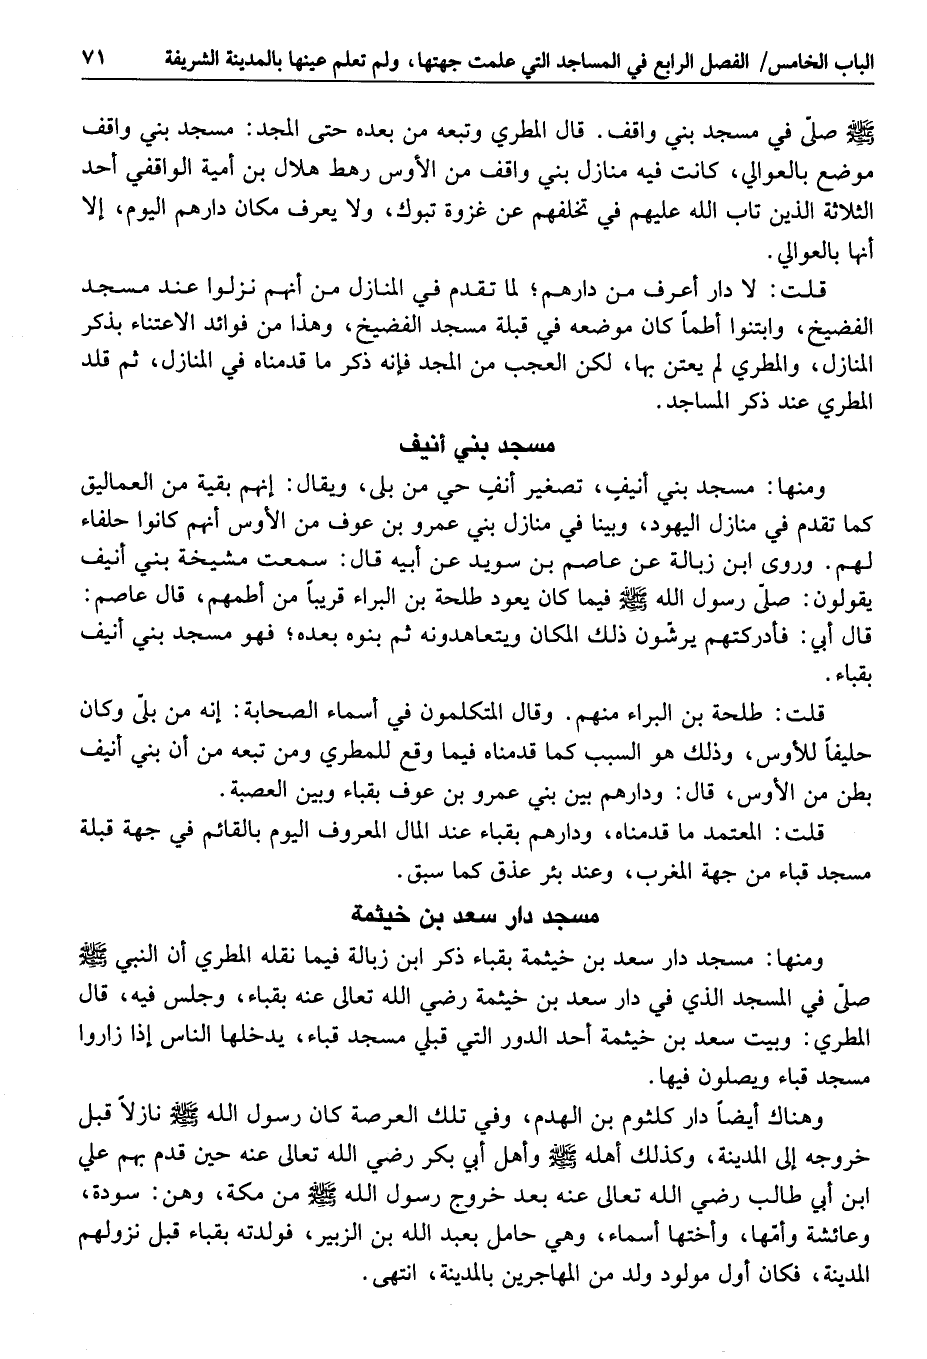 الباب الخامس/ الفصل الرابع في المساجد التي علمت جهتها، ولم تعلم عينها بالمدينة الشريفة ٧١
ﷺ صلّى في مسجد بني واقف. قال المطري وتبعه من بعده حتى المجد: مسجد بني واقف
موضع بالعوالي، كانت فيه منازل بني واقف من الأوس رهط هلال بن أمية الواقفي أحد
الثلاثة الذين تاب الله عليهم في تخلفهم عن غزوة تبوك، ولا يعرف مكان دارهم اليوم، إلا
أنها بالعوالي.
قلت: لا دار أعرف من دارهم؛ لما تقدم في المنازل من أنهم نزلوا عند مسجد
الفضيخ، وابتنوا أطماً كان موضعه في قبلة مسجد الفضيخ، وهذا من فوائد الاعتناء بذكر
المنازل، والمطري لم يعتن بها، لكن العجب من المجد فإنه ذكر ما قدمناه في المنازل، ثم قلد
المطري عند ذكر المساجد.
مسجد بني أنيف
ومنها: مسجد بني أنيف، تصغير أنف حي من بلى، ويقال: إنهم بقية من العماليق
كما تقدم في منازل اليهود، وبينا في منازل بني عمرو بن عوف من الأوس أنهم كانوا حلفاء
لهم. وروى ابن زبالة عن عاصم بن سويد عن أبيه قال: سمعت مشيخة بني أنيف
يقولون: صلّى رسول الله ﷺ فيما كان يعود طلحة بن البراء قريباً من أطمهم، قال عاصم:
قال أبي: فأدركتهم يرشّون ذلك المكان ويتعاهدونه ثم بنوه بعده؛ فهو مسجد بني أنيف
بقباء.
قلت: طلحة بن البراء منهم. وقال المتكلمون في أسماء الصحابة: إنه من بلىّ وكان
حليفاً للأوس، وذلك هو السبب كما قدمناه فيما وقع للمطري ومن تبعه من أن بني أنيف
بطن من الأوس، قال: ودارهم بين بني عمرو بن عوف بقباء وبين العصبة.
قلت: المعتمد ما قدمناه، ودارهم بقباء عند المال المعروف اليوم بالقائم في جهة قبلة
مسجد قباء من جهة المغرب، وعند بئر عذق كما سبق.
مسجد دار سعد بن خيثمة
ومنها: مسجد دار سعد بن خيثمة بقباء ذكر ابن زبالة فيما نقله المطري أن النبي ﷺ
صلّى في المسجد الذي في دار سعد بن خيثمة رضي الله تعالى عنه بقباء، وجلس فيه، قال
المطري: وبيت سعد بن خيثمة أحد الدور التي قبلي مسجد قباء، يدخلها الناس إذا زاروا
مسجد قباء ويصلون فيها.
وهناك أيضاً دار كلثوم بن الهدم، وفي تلك العرصة كان رسول الله ﷺ نازلاً قبل
خروجه إلى المدينة، وكذلك أهله ﷺ وأهل أبي بكر رضي الله تعالى عنه حين قدم بهم علي
ابن أبي طالب رضي الله تعالى عنه بعد خروج رسول الله ﷺ من مكة، وهن: سودة،
وعائشة وأمّها، وأختها أسماء، وهي حامل بعبد الله بن الزبير، فولدته بقباء قبل نزولهم
المدينة، فكان أول مولود ولد من المهاجرين بالمدينة، انتهى.